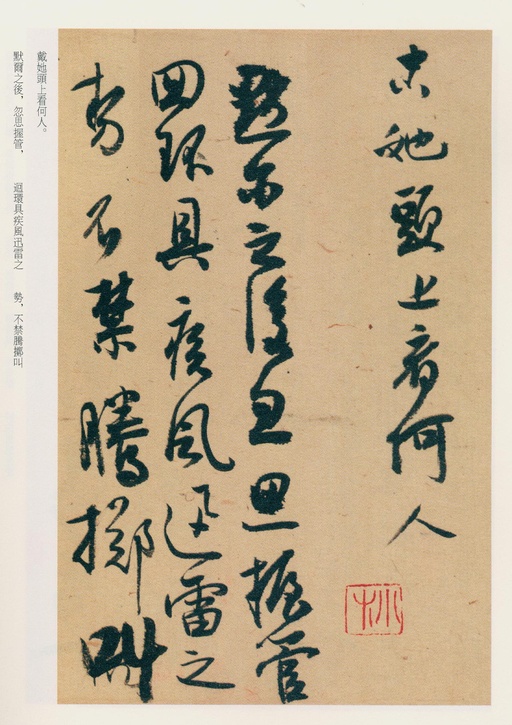 戴她頭上看何人
默爾之後忽思握管
迴環具疾風迅雷之
勢不禁騰擲叫
戴她頭上看何人。
默爾之後，忽思握管，　迴環具疾風迅雷之　勢，不禁騰擲叫